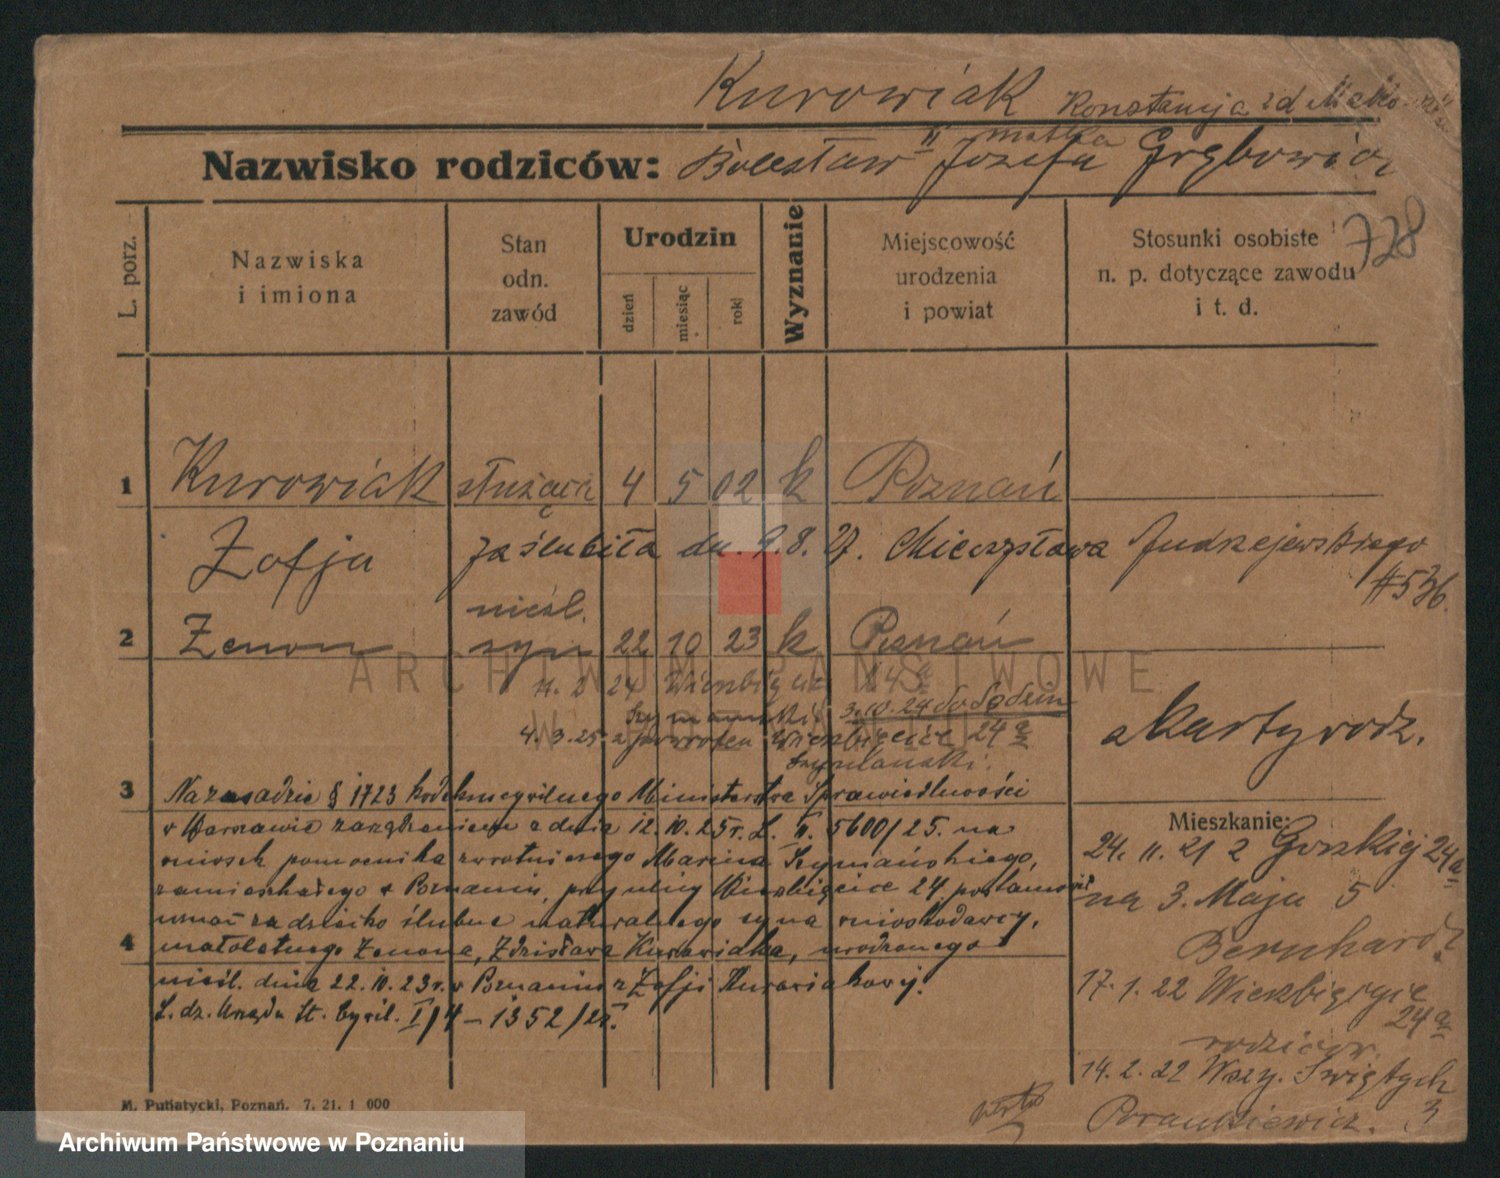 Kurowiak Konstancja
matka
Nazwisko rodziców: Bolesław II Józefa
728
L. porz.
Nazwiska
i imiona
Stan
odn.
zawód
Urodzin
dzień
miesiąc
rok
Wyznanie
Miejscowość
urodzenia
i powiat
Stosunki osobiste
n. p. dotyczące zawodu
i t. d.
1 Kurowiak służąca 4 5 02 k Poznań
Zofja zaślubiła dn. 9.8.27. Mieczysława Jędrzejewskiego
#536.
nieśl.
2 Zenon syn 22 10 23 k Poznań
ARCHIWUM PAŃSTWOWE
W POZNANIU
11. 2 24 24 a
Szymański 3.10.24 do
4. 3. 25 z powrotem Wierzbięcice 24 a
Szymański.
z Karty rodz.
3 Na zasadzie § 1723 kod. cywilnego Ministerstwo Sprawiedliwości
w Warszawie zarządzeniem z dnia 12.10.25r. L. II. 5600/25. na
wniosek pomocnika zwrotniczego Marjana Szymańskiego,
zamieszkałego w Poznaniu, przy ulicy Wierzbięcice 24
uznać za dziecko ślubne naturalnego syna wnioskodawcy,
4 małoletniego Zenona, Zdzisława Kurowiaka, urodzonego
nieśl. dnia 22.10.23r. w Poznaniu z Zofji Kurowiakowej.
L. dz. Urzędu St. Cywil. I/4 – 1352/25.
Mieszkanie:
24. 11. 21 z Górskiej 24a
na 3. Maja 5
Bernhardt
17. 1. 22 Wierzbięcice
24 a
rodziców.
14. 2. 22 Wszy. Świętych
3
M. Putiatycki, Poznań. 7. 21. 1 000
Archiwum Państwowe w Poznaniu